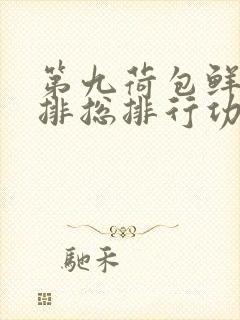 第九荷包鲜
排总排行功
驰禾